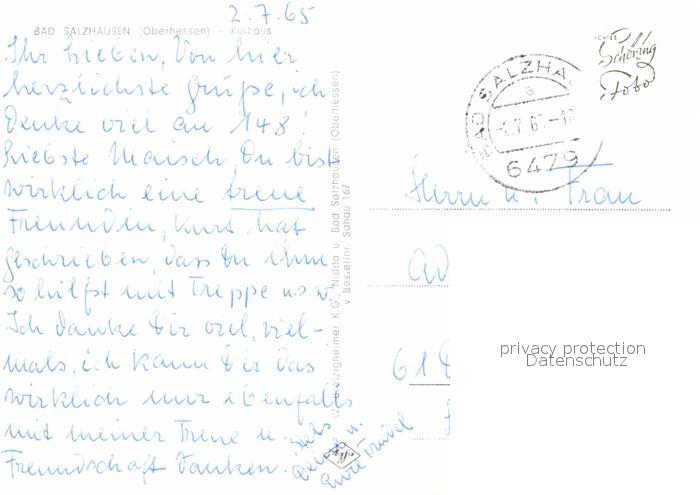 2.7.65
BAD SALZHAUSEN (Oberhessen) - Kurhaus
Ihr Lieben, Von hier
herzlichste Grüße, ich
denke viel an 148!
Liebste Maisch, Du bist
wirklich eine treue
Freundin, Kurt hat
geschrieben, dass Du ihm
so hilfst mit Treppe u.s.w.
Ich danke Dir viel, viel-
mals, ich kann Dir das
wirklich nur ebenfalls
mit meiner Treue u.
Freundschaft danken.
Stets
Deine u.
Eure Trudel
K.G., Nidda u. Bad Salzhausen (Oberhessen)
v. Bestellnr. Sahau 167
ECHTES
Schöning
Foto
BAD SALZHA
a
-2.7.65-12
6479
Herrn u. Frau
Ad
61 D
privacy protection
Datenschutz